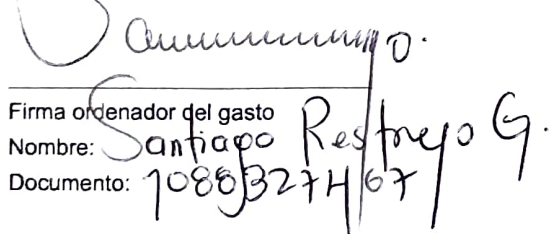 Firma ordenador del gasto
Nombre: Santiago Restrepo G.
Documento: 1088327467